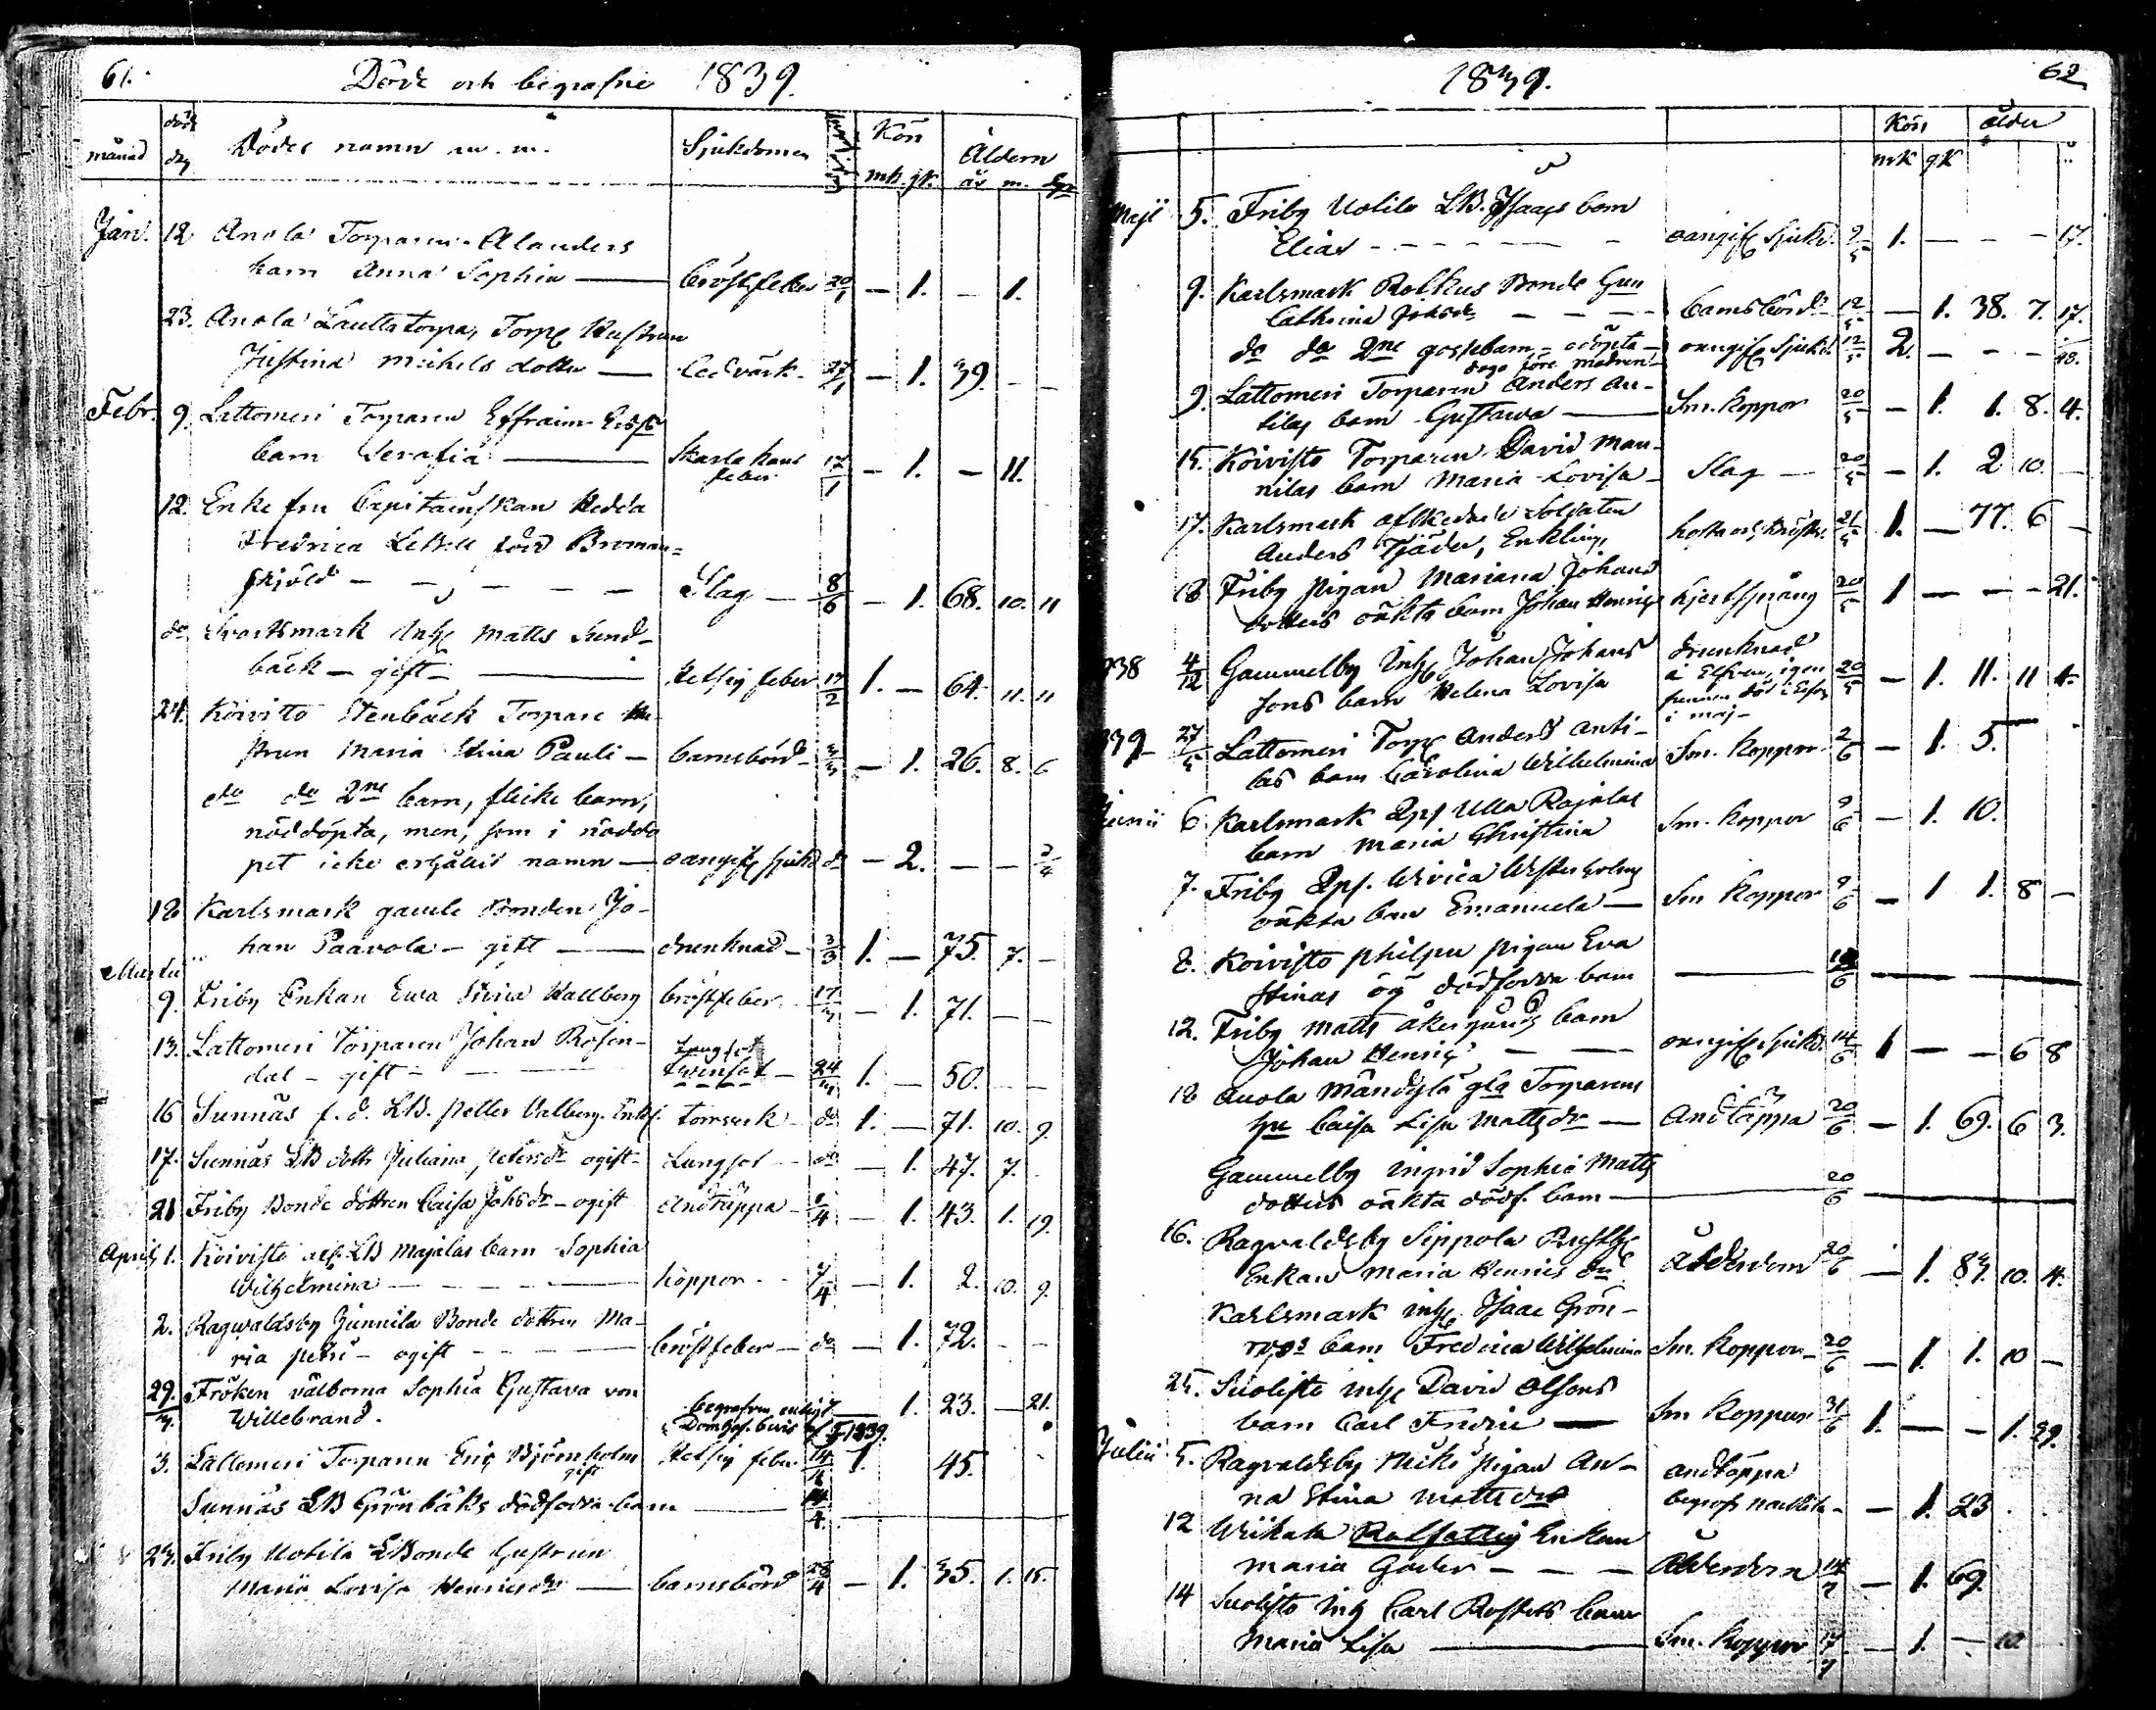 61.
Döde och begrafne 1839.
månad död dag Dödes namn m. m. Sjukdomen Kön Åldern
mk. qk. år m. dgr
Jan. 12 Anola Torparen Alanders
barn Anna Sophia — bröstfeber 20/1 — 1. — 1.
23. Anola Lautta torpa, Torp. Hustrun
Justina Michels dotter — Ledvärk 27/1 — 1. 39. — —
Febr. 9. Lattomeri Torparen Effraim
barn Serafia — Skarlakans feber 17/1 — 1. — 11.
12. Enkefru Capitainskan Hedda
Fredrica född Broman=
skjöld — — — — Slag — 8/6 — 1. 68. 10. 11
do Svartsmark Inh. Matts Sund-
bäck — gift — Hetsig feber 17/2 1. — 64. 11. 11
24. Koivisto Stenbäck Torpare Hu-
strun Maria Stina Pauli — barnsbörd 3/3 — 1. 26. 8. 6
do do 2ne barn, flicke barn,
nöddöpta, men, som i nöddo
pet icke erhållit namn — oangif. sjukd. do — 2. — — 3/4
18 Karlsmark gamle Bonden Jo-
han Paavola — gift — drunknad — 3/3 1. — 75. 7. —
Martii
9. Friby Enkan Ewa Stina Hallberg bröstfeber 17/3 — 1. 71. — —
13. Lattomeri Torparen Johan Rosen- Lungsot
dal — gift — 24/3 1. — 50. — —
16 Sunnäs f. d. LB. Petter Valberg. Enkl. torrverk do 1. — 71. 10. 9.
17. Sunnäs LB dottr Juliana Petersdr ogift — Lungsot — do — 1. 47. 7.
21 Friby Bonde dottren Caisa Johsdr — ogift Andtäppa — /4 — 1. 43. 1. 19.
April 1. Koivisto LB Majalas barn Sophia
Wilhelmina — — — — koppor — 7/4 — 1. 2. 10. 9.
2. Ragwaldsby Junnila Bonde dottren Ma-
ria Petri — ogift — — — bröstfeber — do — 1. 72. — —
29./3. Fröken välborna Sophia Gustava von begrafven enligt
Willebrand. Domhaf. bevis af 1839. — 1. 23. — 21.
3. Lattomeri Torparen Eric Björnholm gift Hetsig feber 14/4 1. 45.
Sunnäs LB Grönbäks dödfödda barn — 14/4 —
23. Friby Uotila LBonde hustrun
Maria Lovisa Henricsdr — barnsbörd 28/4 — 1. 35. 1. 15.
1839. 62
Kön ålder
mk qk
Maji 5. Friby Uotila LB. Isaacs barn
Elias — — — — — oangif. Sjukd. 9/5 1. — — — 17.
9. Karlsmark Rolkus Bonde Hu
Cathrina Johsdr — — — barnsbörd 12/5 — 1. 38. 7. 17.
do do 2ne gossebarn, — odöpta — oangif. Sjukd. 12/5 2. — — —
dogo före modren —
9. Lattomeri Torparen Anders An-
tilas barn Gustava — Sm. koppor 20/5 — 1. 1. 8. 4.
15. Koivisto Torparen David Man-
nilas barn Maria Lovisa — Slag — 20/5 — 1. 2 10. —
17. Karlsmark afskedade Soldaten
Anders Tjäder, Enkling, hosta och bröstv. 21/5 1. — 77. 6 —
18 Friby pigan Mariana Johans
dotters oäkta barn Johan Henric hjertsprång 20/5 1 — — — 21.
838 4/12 Gammelby Inh. Johan Johans drunknad
sons barn Helena Lovisa i Elfven, igen 20/5 — 1. 11. 11 4.
i maj —
839 — 27/5 Lattomeri Torp. Anders Anti-
las barn Carolina Wilhelmina Sm. koppor 2/6 — 1. 5.
Junii 6. Karlsmark Qps Ulla Rajalas
barn Maria Christina Sm. koppor 9/6 — 1. 10.
7. Friby Qps. Wivica Westerholms
oäkta barn Emanuela — Sm koppor 9/6 — 1 1. 8 —
8. Koivisto pigan Eva
Stinas dödfödda barn — /6 —
12. Friby Matts Åkergårds barn
Johan Henric — — oangif. sjukd. 14/6 1 — — 6 8
18 Anola Mändylä gla Torparens
hu Caisa Lisa Mattsdr — Andtäppa 20/6 — 1. 69. 6 3.
Gammelby Ingrid Sophia Matts
dotters oäkta dödf. barn — 20/6 —
16. Ragvaldsby Sippola
Enkan Maria Henrics dr Ålderdom 20/6 — 1. 83. 10. 4.
Karlsmark inh. Isaac Grön-
roos barn Fredrica Wilhelmina Sm. koppor — 20/6 — 1. 1. 10 —
25. Suolisto inh. David Olsons
barn Carl Fredric — Sm koppor 31/6 1. — — 1. 29.
Julii 5. Ragvaldsby pigan An- andtäppa
na Stina Mattsdr — 1. 23
12 Wikala Enkan
Maria — — — Ålderdom 14/7 — 1. 69.
14 Suolisto inh Carl Rosters barn
Maria Lisa — Sm. koppor 17/7 — 1. — 10